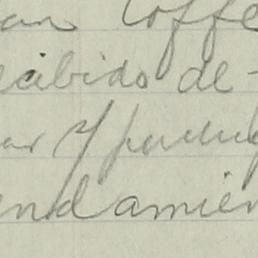 an Coffe
ecibido de-
ar y
endamien